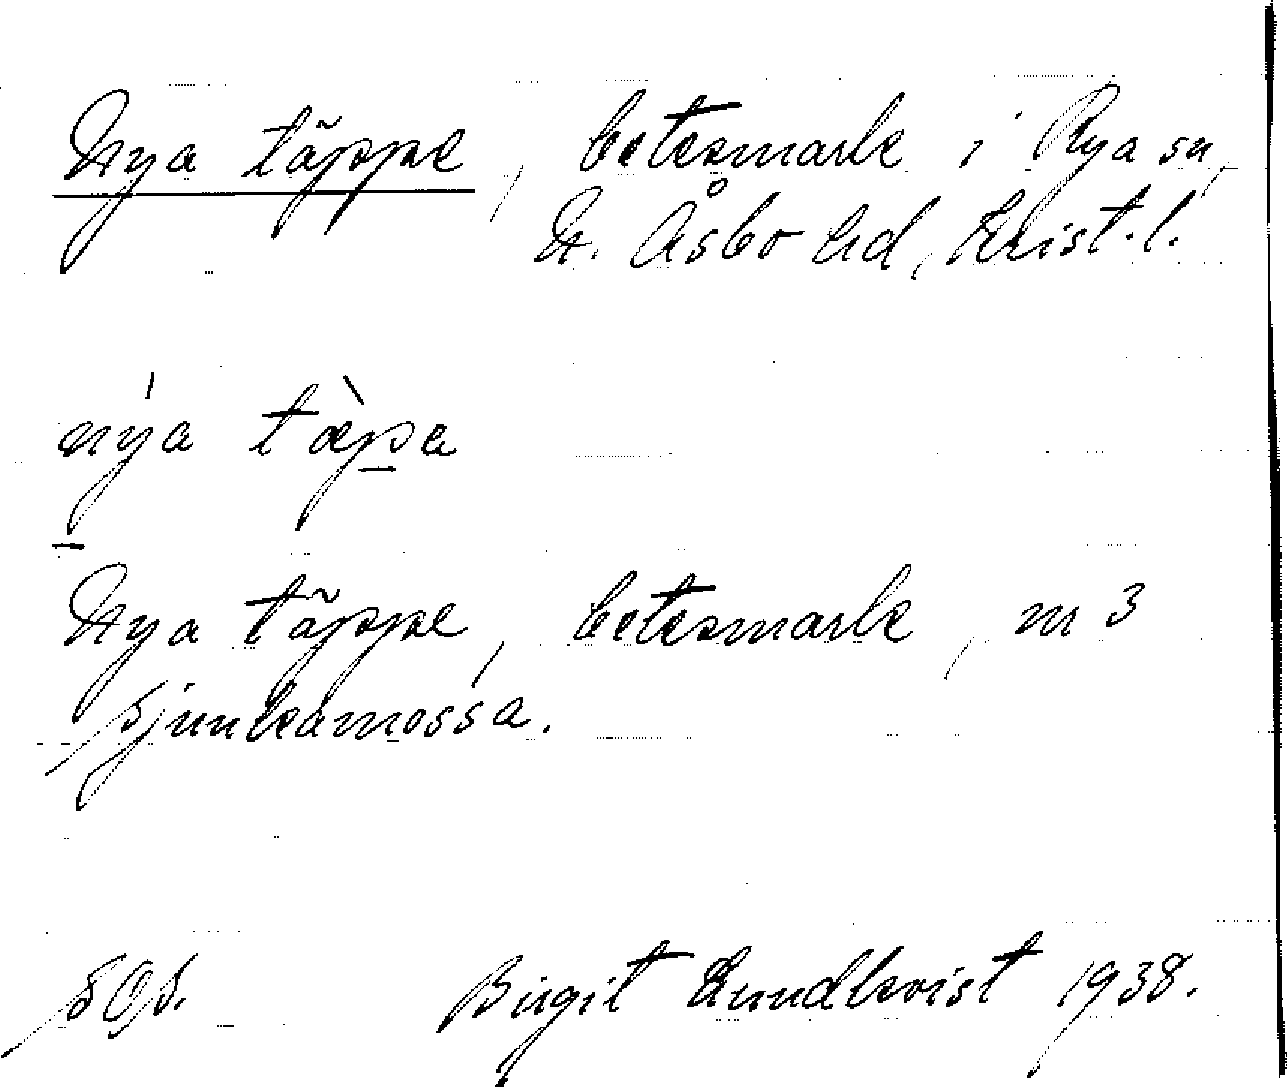 Nya täppe, betesmark i Rya sn,
N. Åsbo hd, Krist. l.
nýa tæ̀pa
Nya täppe, betesmark, nr 3
Sjunkamossa.
SOS. Birgit Lundkvist 1938.